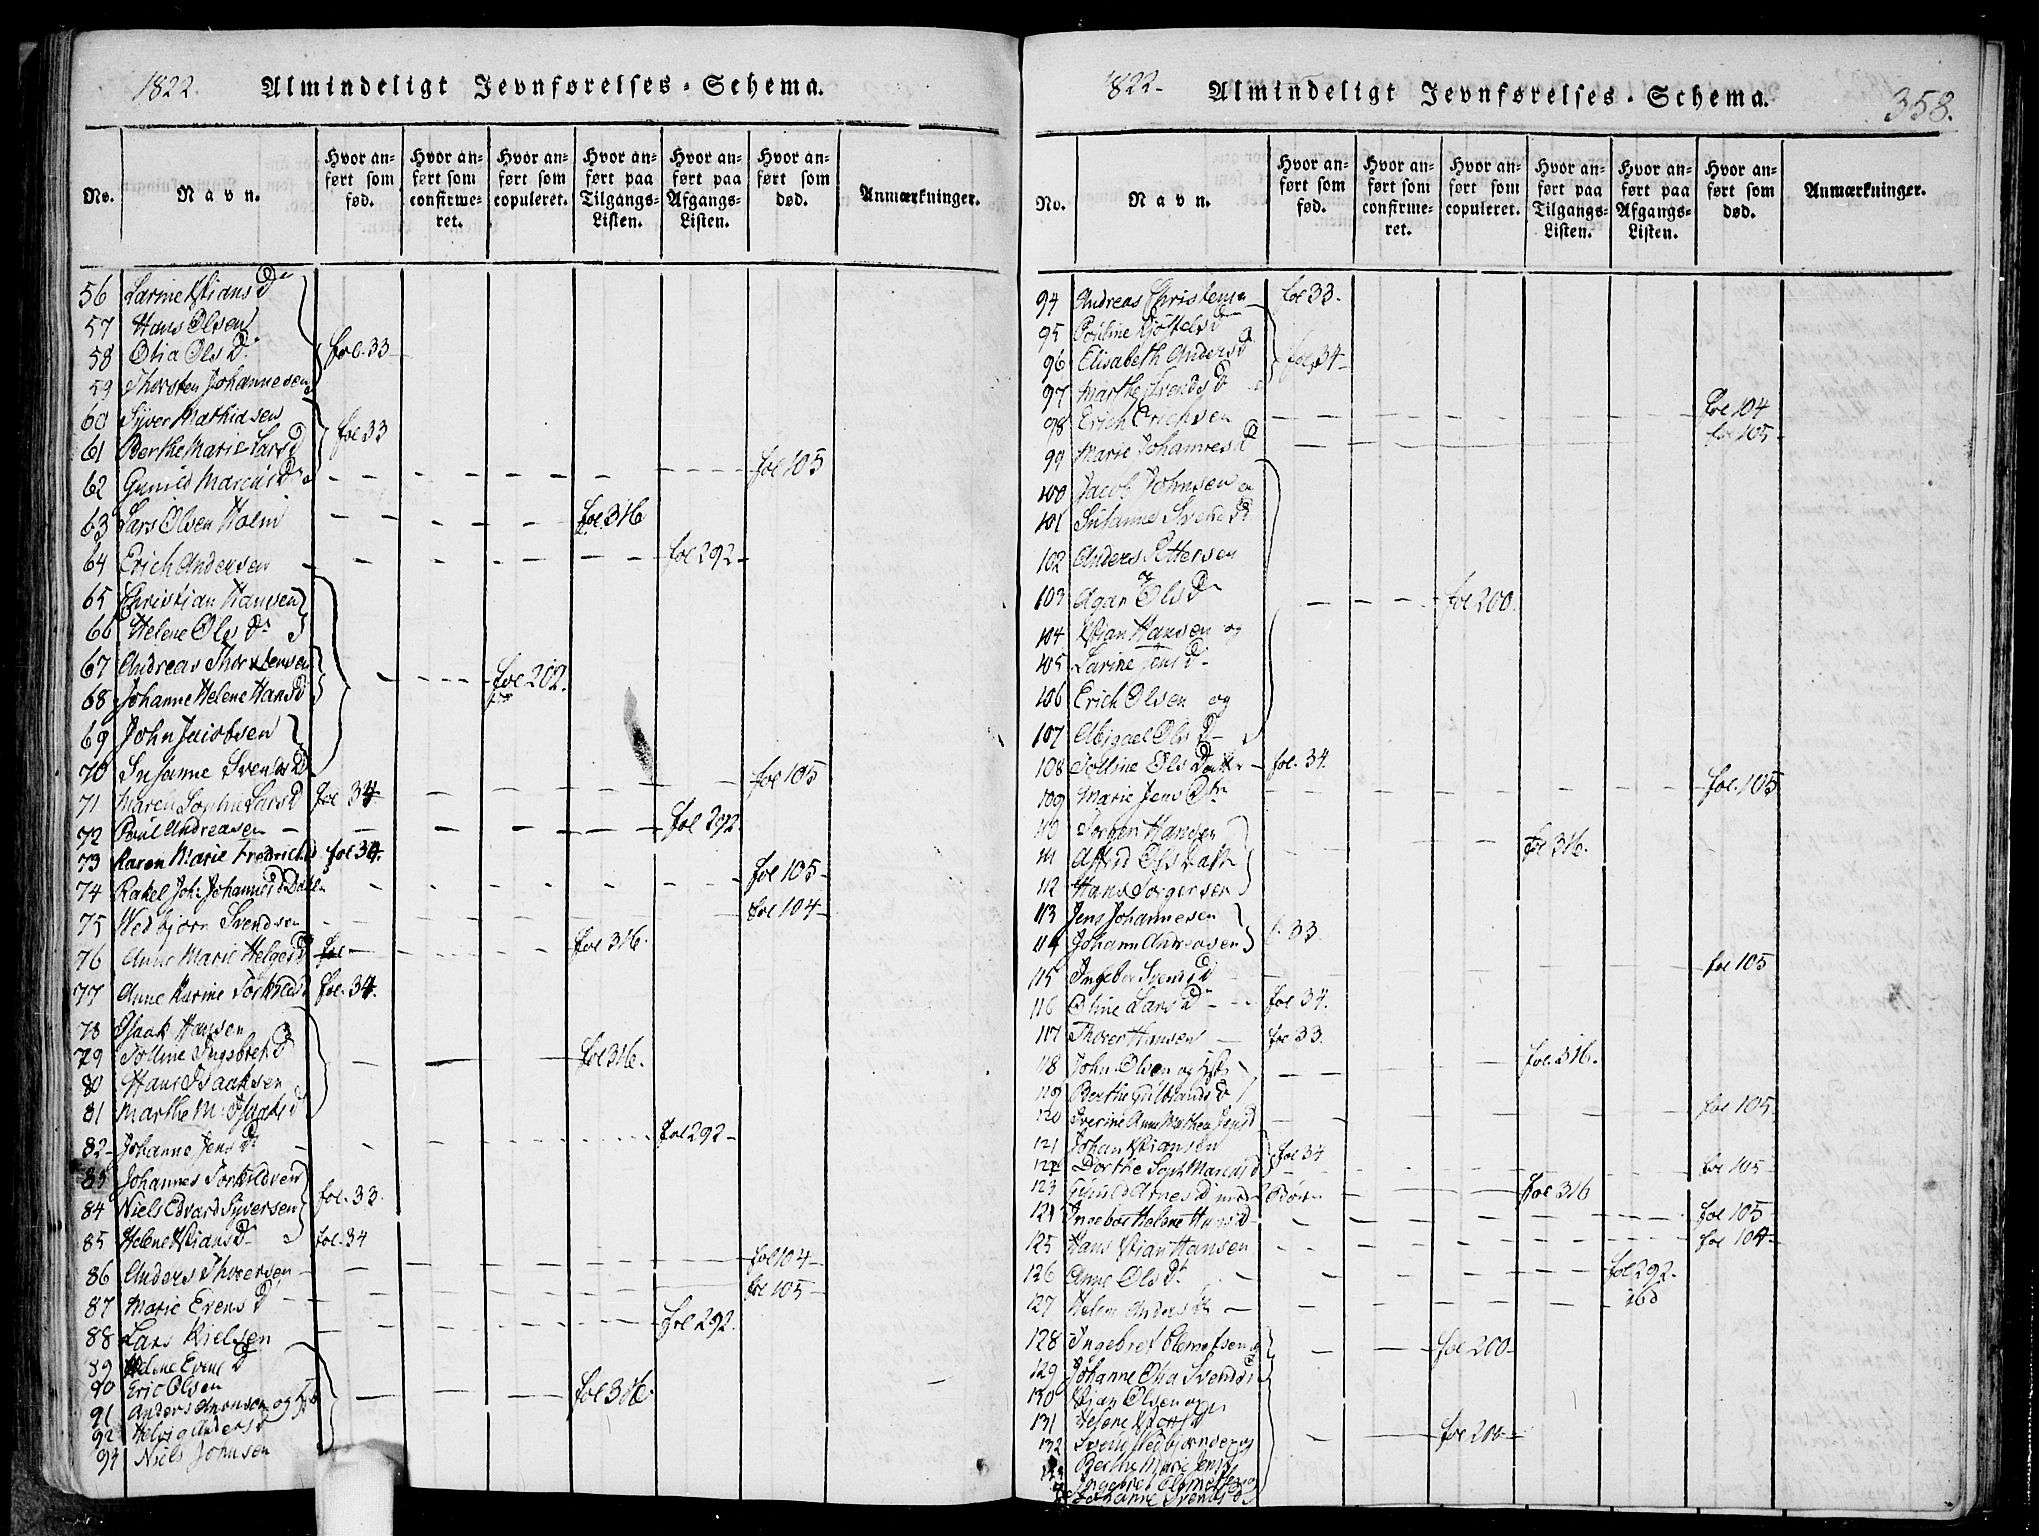 1822. Almindeligt Jevnførelses-Schema.
No. Navn. Hvor anført som fød. Hvor anført som confirmeret. Hvor anført som copuleret. Hvor anført paa Tilgangs-Listen. Hvor anført paa Afgangs-Listen. Hvor anført som død. Anmærkninger.
56 Larine Xtians D
57 Hans Olsen
58 Olia Ols D. fol. 33
59 Thorsten Johannesen
60 Syver Mathiasen
61 Berthe Marie Lars D fol 33
62 Gunild Marcus D fol 105
63 Lars Olsen Holm fol. 316
64 Erich Andersen fol 292
65 Christian Hansen
66 Helene Ols D.
67 Andreas Thorstensen
68 Johanne Helene Hans D fol 202.
69 John Jacobsen
70 Susanne Svends D fol 105
71 Maren Sophie Lars D fol 34
72 Poul Andreasen fol 292
73 Karen Marie Fredrichs fol 34.
74 Rakel Joh: Johannes D fol 105
75 Wedbjørn Svendsen fol 104
76 Anne Marie Helges D fol 316.
77 Anne Karine Torkilds fol. 34.
78 Isaak Hansen
79 Tolline Ingebret D fol 316.
80 Hans Isaaksen
81 Marthe M: Isaks D
82 Johanne Jens D fol 292
83 Johannes Torkildsen
84 Niels Edvard Syversen fol. 33.
85 Helene Xtians D fol. 34
86 Anders Thorersen fol 104
87 Marie Evens D fol 105
88 Lars Nielsen fol 292.
89 Helene Evens D
90 Eric Olsen
91 Anders Amonsen og fol 316.
92 Helvig Anders D
93 Niels Johnsen
1822 Almindeligt Jevnførelses-Schema. 358.
No. Navn. Hvor anført som fød. Hvor anført som confirmeret. Hvor anført som copuleret. Hvor anført paa Tilgangs-Listen. Hvor anført paa Afgangs-Listen. Hvor anført som død. Anmærkninger.
94 Andreas Christensen fol 33.
95 Pouline Kjøstels D
96 Elisabeth Anders D fol. 34
97 Marthe Svends D
98 Erich Erichsen fol 104
99 Marie Johannes D fol 105
100 Jacob Johnsen og
101 Susanne Svends D
102 Anders Pettersen
103 og Agar Ols D fol 200.
104 Xtjan Hansen og
105 Larine Jens D
106 Erich Olsen og
107 Abigael Ols D
108 Tolline Ols Datter fol. 34.
109 Marie Jens D fol. 105
110 Torger Hansen
111 Astrid Ols Datt fol 316.
112 Hans Torgersen
113 Jens Johannesen
114 Johann Andreasen f. 33.
115 Ingebor Svends D fol 105
116 Oline Lars D fol 34.
117 Thorer Hansen fol 33.
118 John Olsen og fol. 316.
119 Berthe Gulbrands D
120 Sverine Anne Mathea Jens D fol 105
121 Johan Xtiansen fol 34
122 Dorthe Soph: Marcus D fol 105
123 Arnes D med fol 316
124 Ingebor Helene Hans D fol 105
125 Hans Xtian Hansen fol 104
126 Anne Ols D fol 292.
127 Helene Anders D ibd
128 Ingebret Clemetsen og fol 200
129 Johanne Olia Svends D
130 Xtjan Olsen og
131 Helene
132 Svend Wedbjørnsen og fol 200
Berthe Marie Jens D
Ingebret Clemetsen og
Johanne Svends D